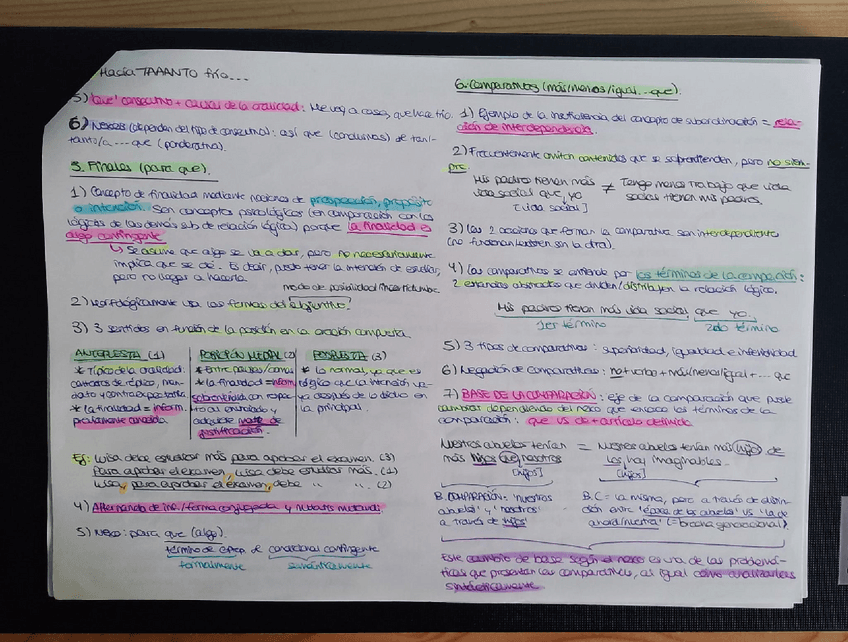 Hacía TAAANTO frío...
5) 'Que' consecutivo + causal de la oralidad: Me voy a casa, que hace frío.
6) Nexos (dependen del tipo de consecutiva): así que (conclusivas) de tan/-
tanto/a ... que (ponderativa).
3. Finales (para que).
1) Concepto de finalidad mediante nociones de prospección, propósito
o intención. Son conceptos psicológicos (en comparación con los
lógicos de las demás sub de relación lógica) porque la finalidad es
algo contingente
↳ Se asume que algo se va a dar, pero no necesariamente
implica que se dé. Es decir, puedo tener la intención de estudiar,
pero no llegar a hacerlo.
modo de posibilidad/incertidumbre
2) Morfológicamente usa las formas del subjuntivo.
3) 3 sentidos en función de la posición en la oración compuesta.
ANTEPUESTA (1)
* Típico de la oralidad:
contextos de réplica, man-
dato y contraexpectativa.
* La finalidad = inform.
previamente conocida
POSICIÓN MEDIAL (2)
* Entre pausas/comas
* la finalidad = inform.
sobrevenida con respec-
to al enunciado y
adquiere matiz de
justificación.
POSPUESTA (3)
* Lo normal, ya que es
lógico que la intención va-
ya después de lo dicho en
la principal.
Ej: Luisa debe estudiar más para aprobar el examen. (3)
Para aprobar el examen, Luisa debe estudiar más. (1)
Luisa, para aprobar el examen, debe " ". (2)
4) Alternancia de inf./forma conjugada y mutatis mutandi.
5) Nexo: para que (algo).
término de de condicional contingente
formalmente semánticamente
6. Comparativas (más/menos/igual... que).
1) Ejemplo de la ineficiencia del concepto de subordinación = rela-
ción de interdependencia.
2) Frecuentemente omiten contenidos que se sobreentienden, pero no siem-
pre.
Mis padres tienen más vida social que yo [vida social] ≠ Tengo menos trabajo que vida social tienen mis padres.
3) Las 2 oraciones que forman la comparativa son interdependientes
(no funcionan/existen sin la otra).
4) Las comparativas se entiende por los términos de la comparación:
2 entidades abstractas que dividen/distribuyen la relación lógica.
Mis padres tienen más vida social que yo.
1er término 2do término
5) 3 tipos de comparativas: superioridad, igualdad e inferioridad.
6) Negación de comparativas: no + verbo + más/menos/igual + ... que
7) BASE DE LA COMPARACIÓN: eje de la comparación que puede
cambiar dependiendo del nexo que enlaza los términos de la
comparación: que vs de + artículo definido
Nuestros abuelos tenían más hijos que nosotros [hijos]
= Nuestros abuelos tenían más hijos de los hoy imaginables. [hijos]
B. COMPARACIÓN: 'nuestros
abuelos' y 'nosotros'
a través de 'hijos'
B.C = la misma, pero a través de distin-
ción entre 'época de los abuelos' vs 'la de
ahora/nuestra' (= brecha generacional).
Este cambio de base según el nexo es una de las problemá-
ticas que presentan las comparativas, al igual cómo analizarlas
sintácticamente